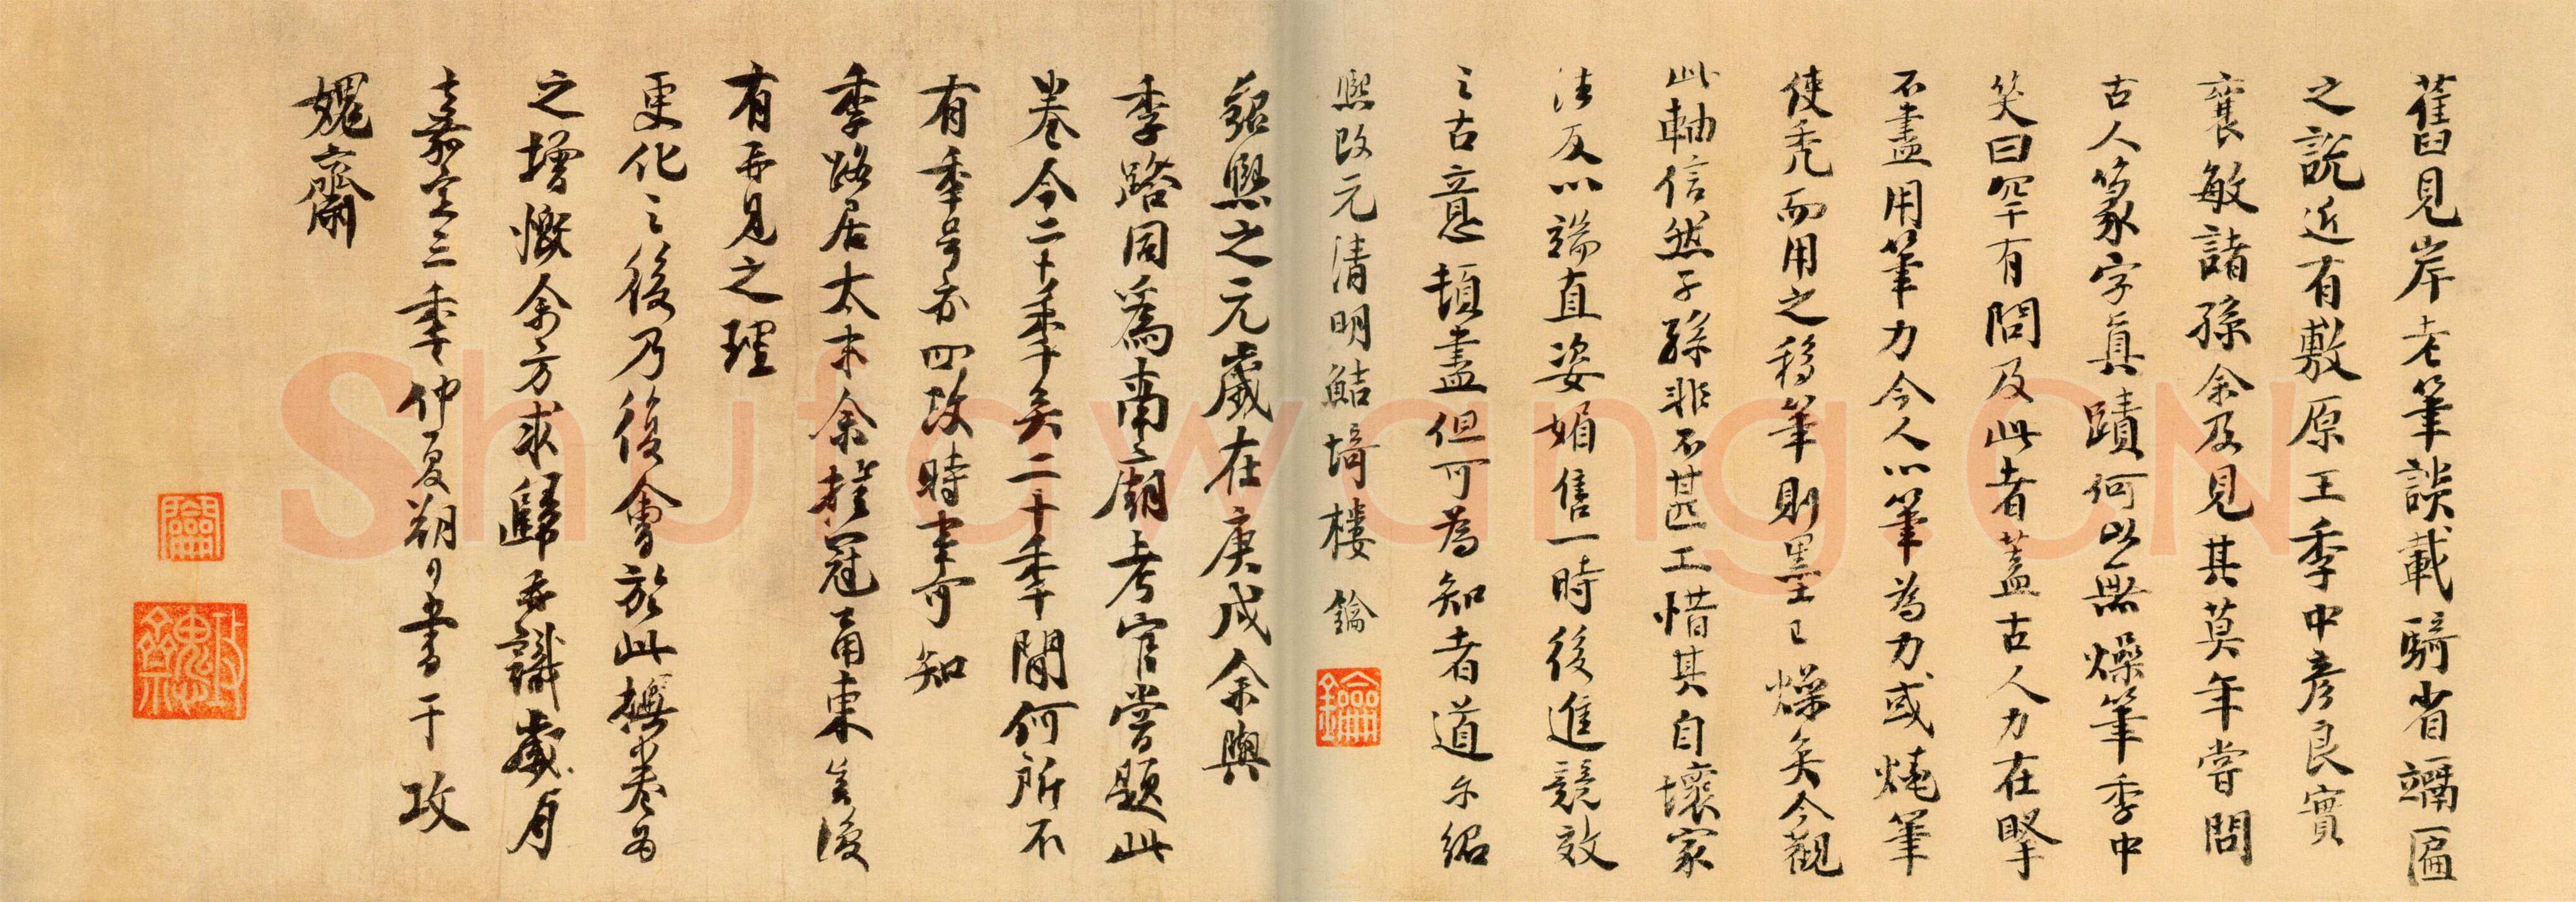 舊見岸老筆談載騎省竵匾
之說近有敷原王季中彥良實
襄敏諸孫余及見其莫年嘗問
古人篆字真蹟何以無燥筆季中
笑曰罕有問及此者蓋古人力在掔
不盡用筆力今人以筆為力或燒筆
使禿而用之移筆則墨已燥矣今觀
此軸信然子孫非不甚工惜其自壞家
法反以端直姿媚售一時後進競效
之古意頓盡但可為知者道尔紹
熙改元清明鮚埼樓鑰
鑰
紹熙之元歲在庚戌余與
季路同為南廟考官嘗題此
卷今二十季矣二十季間何所不
有季号亦四改時事可知
季路居太末余挂冠甬東豈復
有再見之理
更化之後乃復會於此撫卷為
之增慨余方求歸再識歲月
嘉定三季仲夏朔日書于攻
媿齋
攻媿齋
Shufawang.CN